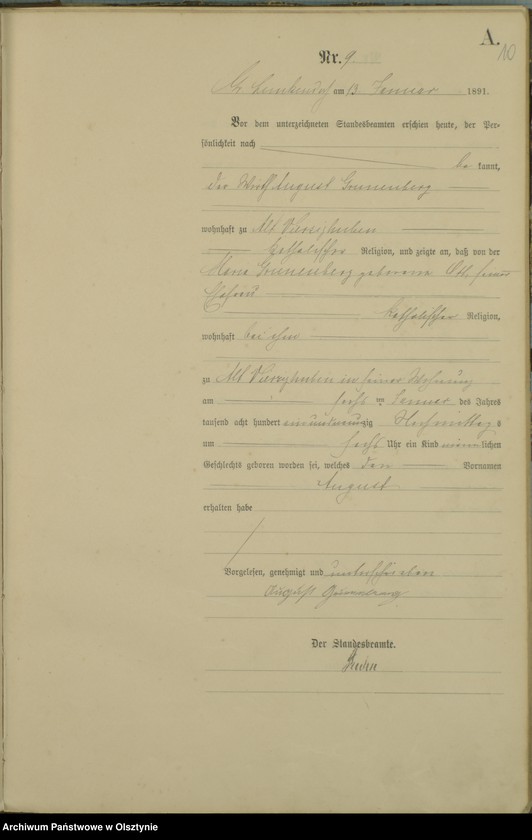 A.
10
Nr. 9
am 13 Januar 1891.
Vor dem unterzeichneten Standesbeamten erschien heute, der Per-
sönlichkeit nach
be kannt,
der Wirth August Grunenberg
wohnhaft zu Alt Vierzighuben
katholischer Religion, und zeigte an, daß von der
Maria Grunenberg geborene Ott, seiner
Ehefrau
katholischer Religion,
wohnhaft bei ihm
zu Alt Vierzighuben in seiner Wohnung
am sechs ten Januar des Jahres
tausend acht hundert einundneunzig Nachmittag s
um sechs Uhr ein Kind männ lichen
Geschlechts geboren worden sei, welches den Vornamen
August
erhalten habe
Vorgelesen, genehmigt und unterschrieben
August Grunenberg
Der Standesbeamte.
Archiwum Państwowe w Olsztynie